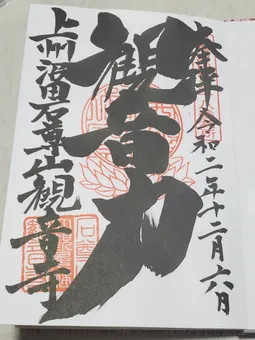 奉拝 令和二年十二月六日
観音力
上州沼田石尊山観音寺